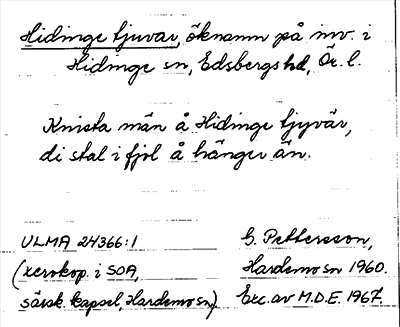 Hidinge tjuvar, öknamn på inv. i
Hidinge sn, Edsbergs hd, Ör. l.
Knista män å Hidinge tjyvär,
di stal i fjol å hänger än.
ULMA 24366:1
(xerokop. i SOA,
särsk. kapsel, Hardemo sn)
G. Pettersson,
Hardemo sn 1960.
Exc. av M.D.E. 1967.